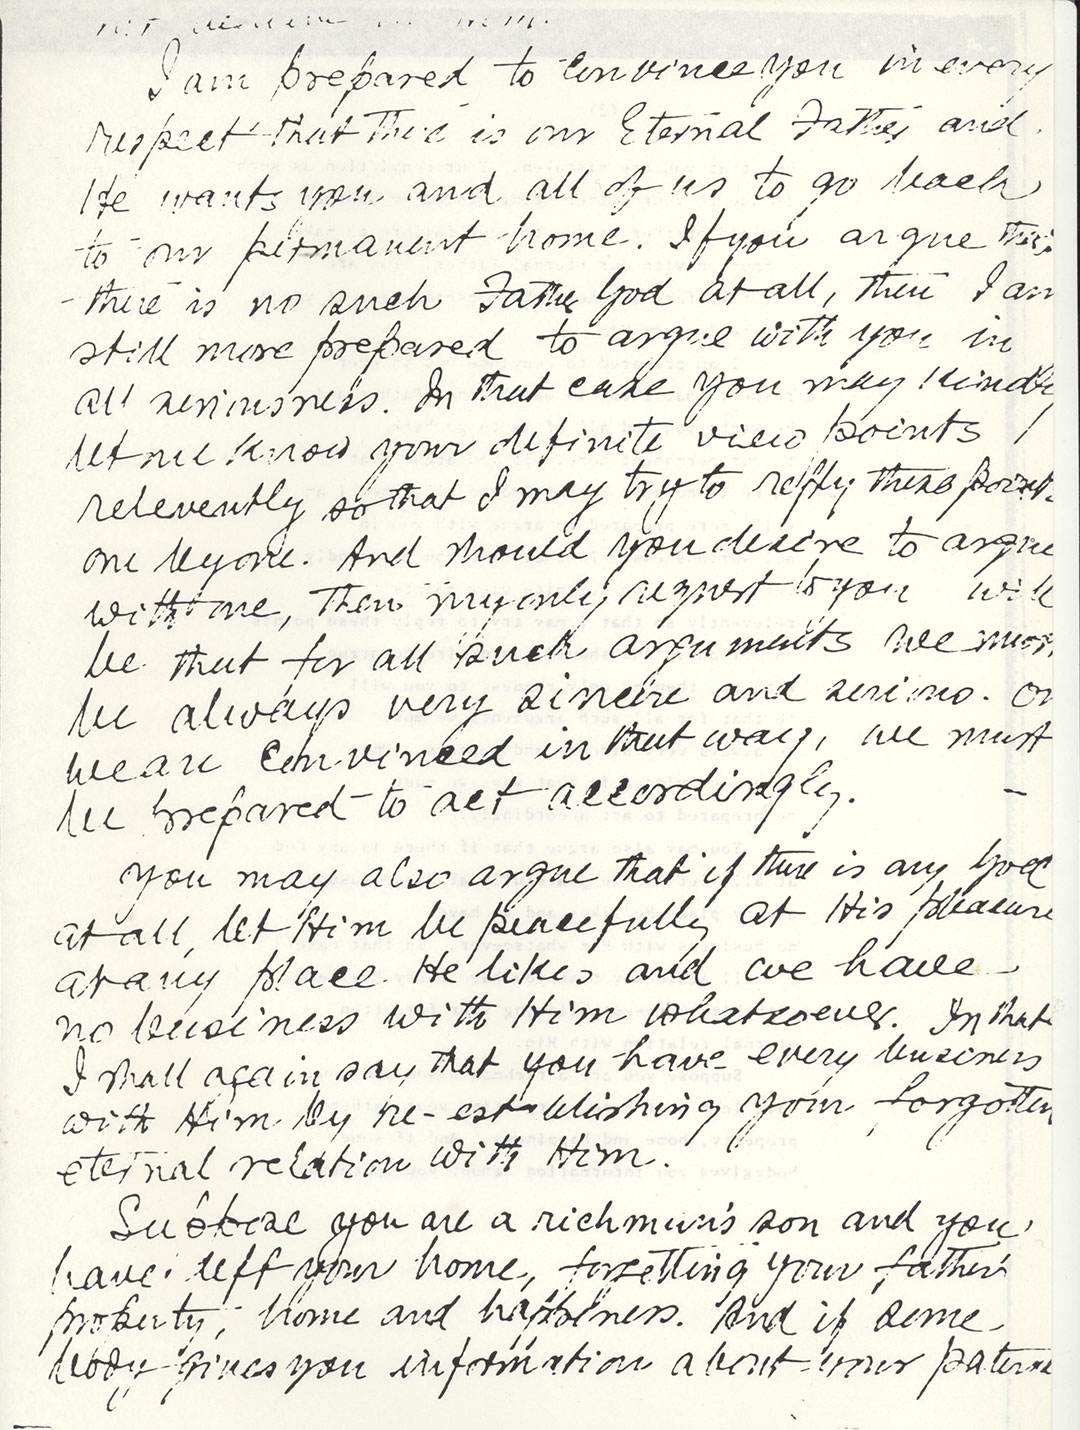 I am prepared to convince you in every
respect that there is our Eternal Father and
He wants you and all of us to go back
to our permanent home. If you argue that
there is no such Father God at all, then I am
still more prepared to argue with you in
all seriousness. In that case you may kindly
let me know your definite view points
relevently so that I may try to reply these points
one by one. And should you desire to argue
with me, then my only request to you will
be that for all such arguments we must
be always very sincere and serious. Or
we are convinced in that way, we must
be prepared to act accordingly.
You may also argue that if there is any God
at all, let Him be peacefully at His pleasure
at any place He likes and we have
no business with Him whatsoever. In that
I shall again say that you have every business
with Him by re-establishing your forgotten
eternal relation with Him.
Suppose you are a richman's son and you
have left your home, forgetting your father's
property, home and happiness. And if some
body gives you information about your paterna